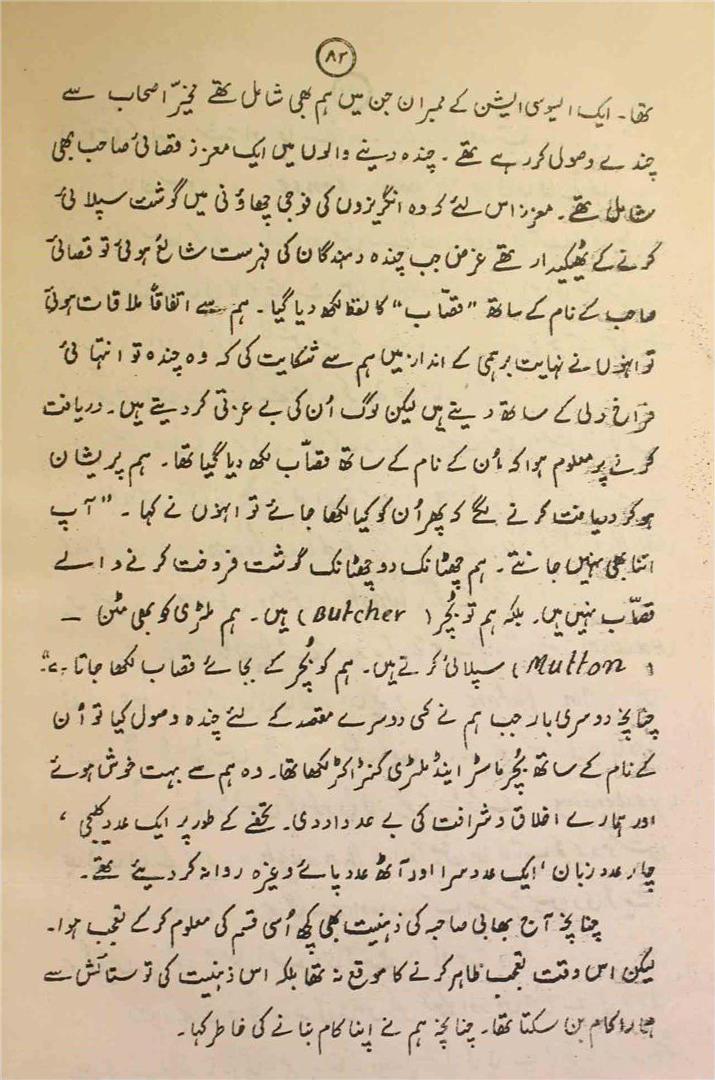 ۸۲
تھا۔ ایک ایسوسی ایشن کے ممبران جن میں ہم بھی شامل تھے مخیّر اصحاب سے
چندے وصولی کررہے تھے۔ چندہ دینے والوں میں ایک معزز قصائی صاحب بھی
شامل تھے۔ معزز اس لئے کہ وہ انگریزوں کی فوجی چھاؤنی میں گوشت سپلائی
کرنے کے ٹھیکیدار تھے غرض جب چندہ دہندگان کی فہرست شائع ہوئی تو قصائی
صاحب کے نام کے ساتھ "قصّاب" کا لفظ لکھ دیا گیا۔ ہم سے اتفاقاً ملاقات ہوئی
تو انہوں نے نہایت برہمی کے انداز میں ہم سے شکایت کی کہ وہ چندہ تو انتہائی
فراخ دلی کے ساتھ دیتے ہیں لیکن لوگ اُن کی بے عزتی کردیتے ہیں۔ دریافت
کرنے پر معلوم ہوا کہ اُن کے نام کے ساتھ قصّاب لکھ دیا گیا تھا۔ ہم پریشان
ہوکر دریافت کرنے لگے کہ پھر اُن کو کیا لکھا جائے تو انہوں نے کہا۔ "آپ
اتنا بھی نہیں جانتے۔ ہم چھٹانک دو چھٹانک گوشت فروخت کرنے والے
قصّاب نہیں ہیں۔ بلکہ ہم تو بُچر (Butcher) ہیں۔ ہم ملٹری کو بھی مٹن ـ
(Mutton) سپلائی کرتے ہیں۔ ہم کو بُچر کے بجائے قصاب لکھا جاتا ہے"۔
چنانچہ دوسری بار جب ہم نے کسی دوسرے مقصد کے لئے چندہ وصول کیا تو اُن
کے نام کے ساتھ بُچر ماسٹر اینڈ ملٹری کنڑاکٹر لکھا تھا۔ وہ ہم سے بہت خوش ہوئے
اور ہمارے اخلاق و شرافت کی بے حد داد دی۔ تحفے کے طور پر ایک عدد کلیجی ،
چار عدد زبان ، ایک عدد سرا اور آٹھ عدد پائے وغیرہ روانہ کر دیئے تھے۔
چنانچہ آج بھابی صاحبہ کی ذہنیت بھی کچھ اُسی قسم کی معلوم کرکے تعجب ہوا۔
لیکن اس وقت تعجب ظاہر کرنے کا موقع نہ تھا بلکہ اس ذہنیت کی تو ستائش سے
ہمارا کام بن سکتا تھا۔ چنانچہ ہم نے اپنا کام بنانے کی خاطر کہا۔